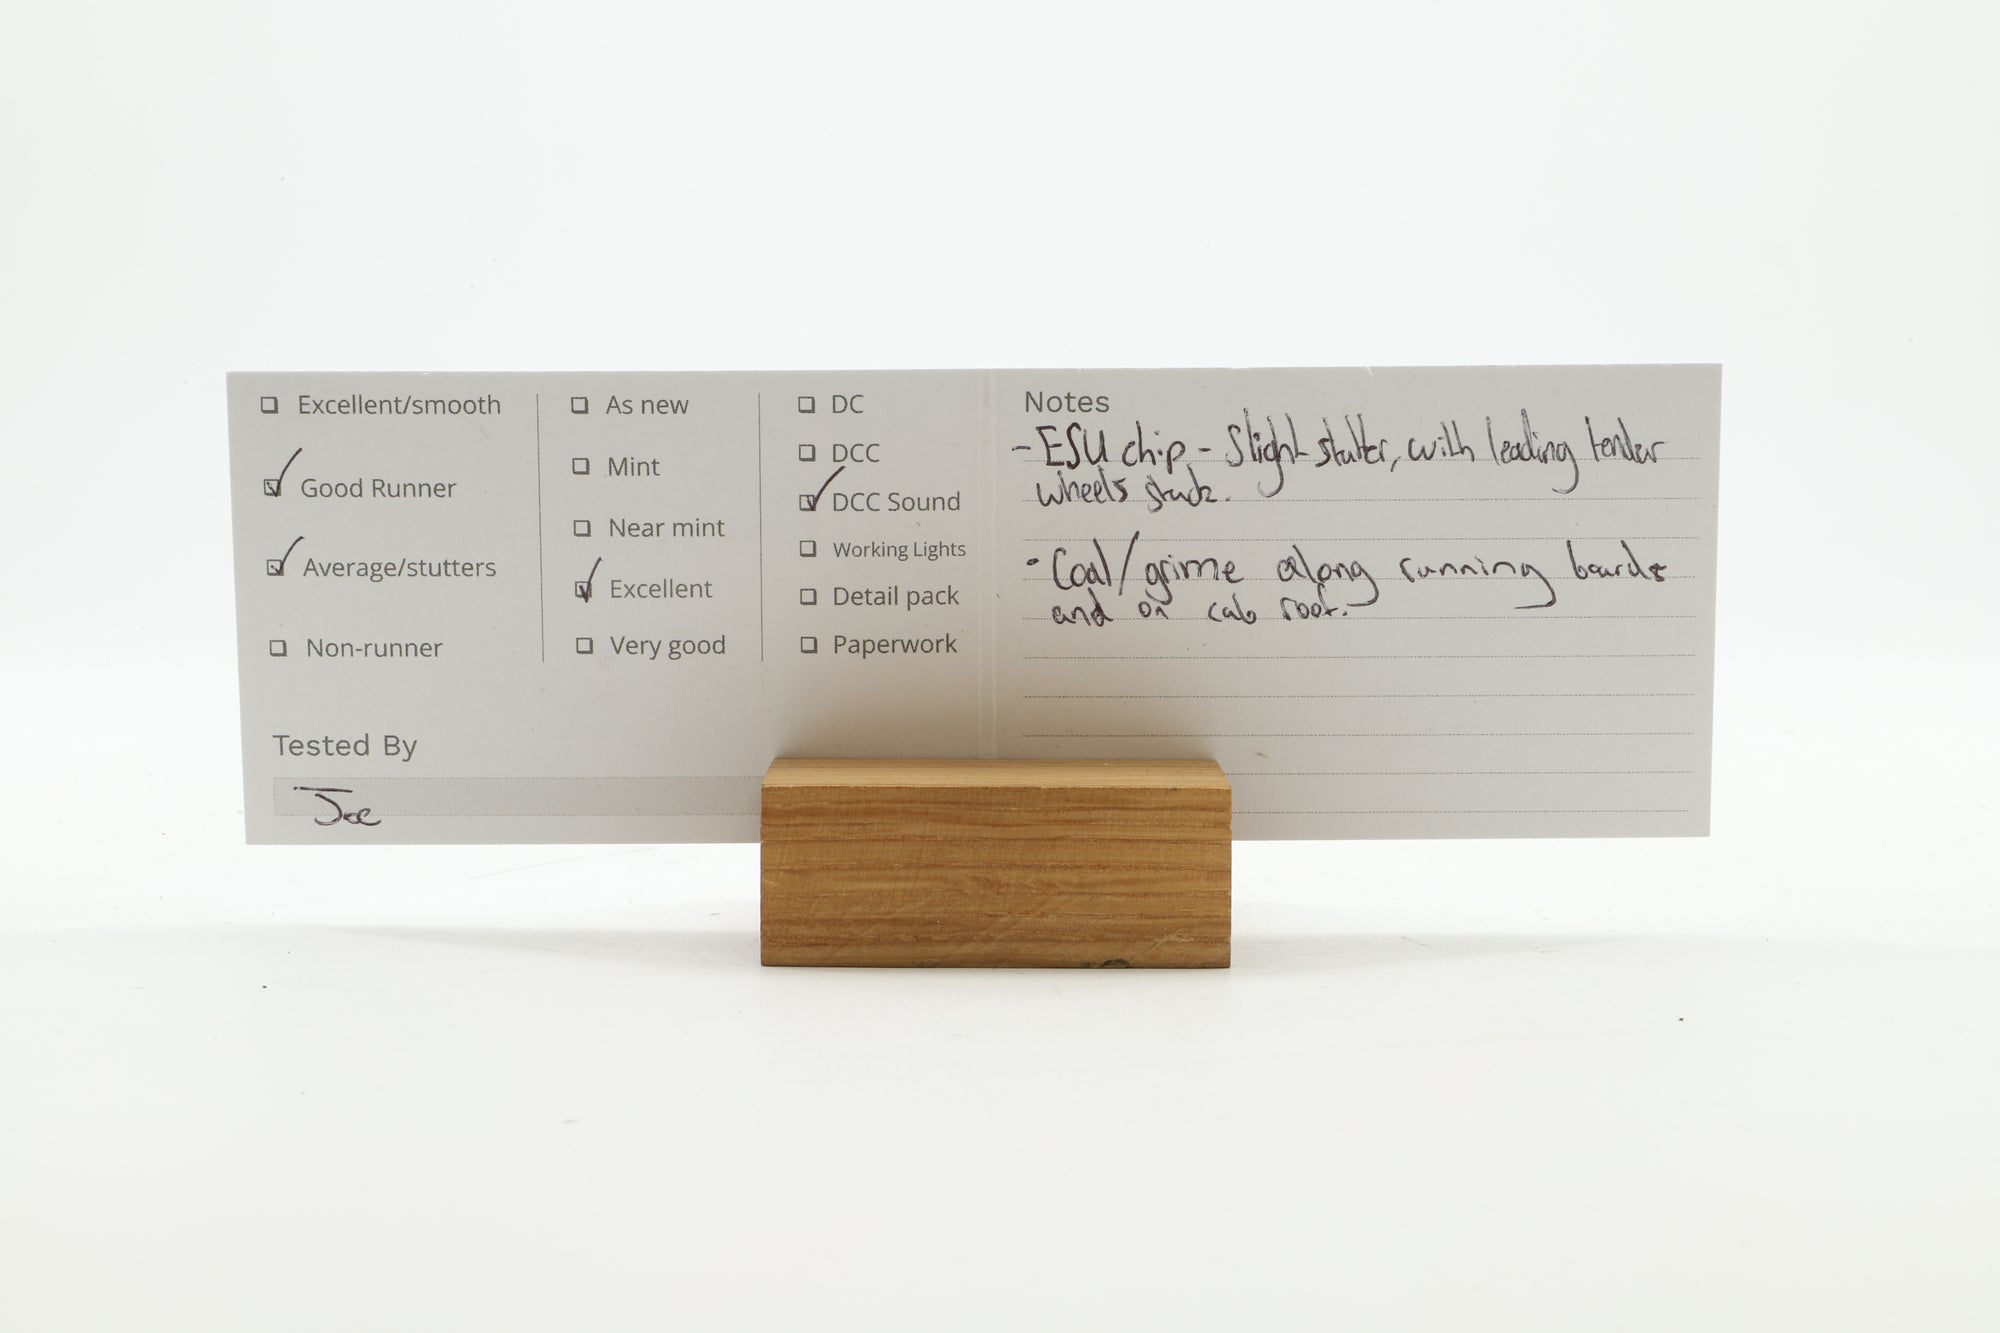 Excellent/smooth
Good Runner
Average/stutters
Non-runner
As new
Mint
Near mint
Excellent
Very good
DC
DCC
DCC Sound
Working Lights
Detail pack
Paperwork
Tested By
Joe
Notes
- ESU chip - Slight stutter, with leading tender
wheels stuck.
- Coal/grime along running boards
and on cab roof.